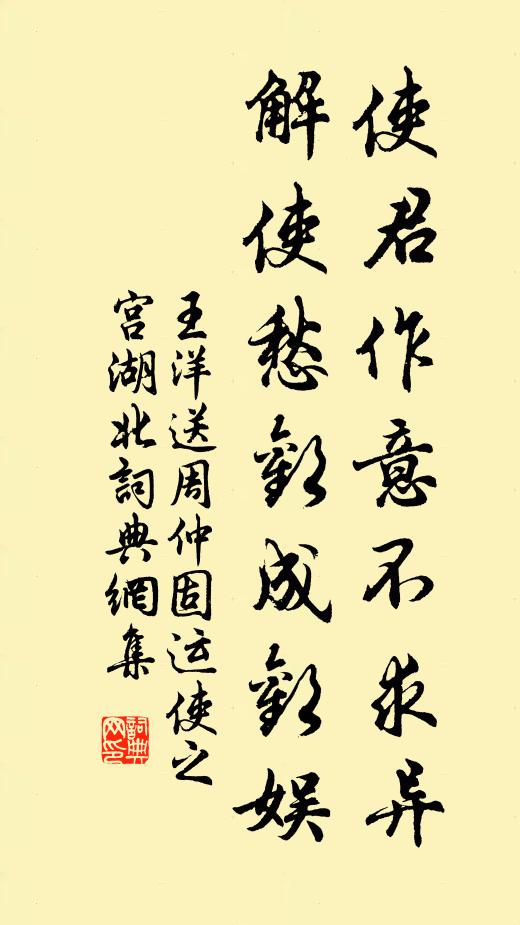 使君作意不求异
解使愁歡成歡娱
王洋送周仲固运使之
宫湖北詞典網集
詞典
网印